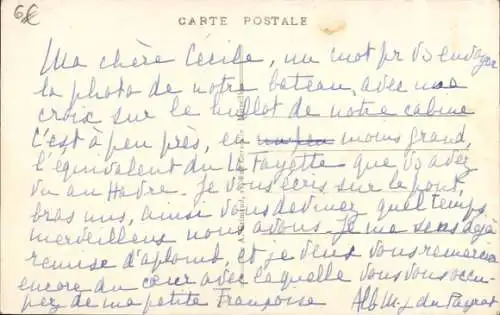 6€
CARTE POSTALE
Ma chère Cécile, un mot pr vs envoyer
la photo de notre bateau, avec une
croix sur le hublot de notre cabine
C'est à peu près, en un peu moins grand,
l'équivalent du La Fayette que vs avez
vu au Havre. Je vous écris sur le pont,
bras nus, ainsi vous devinez quel temps
merveilleux nous avons. Je me sens déjà
remise d'aplomb, et je veux vous remercier
encore du cœur avec laquelle vous vous occu-
pez de ma petite Françoise
du Peyrat